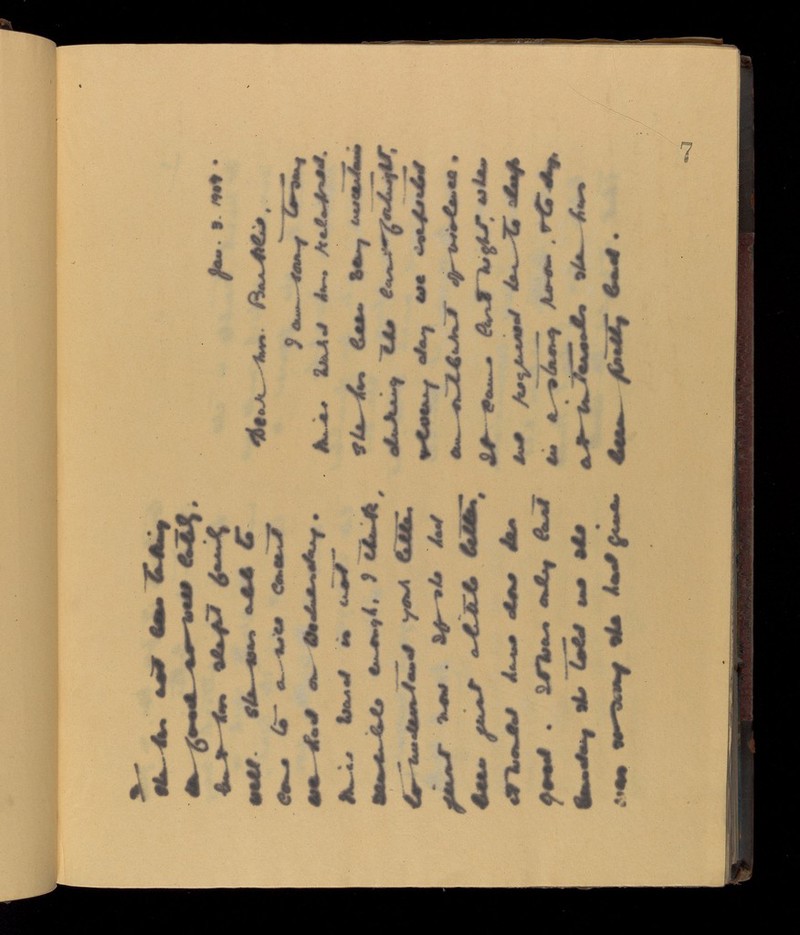 7
Jan. 3. 1909.
Dear Mrs. 
I am sorry to say
Miss Ward has relapsed.
She has been very uncertain
during the last fortnight,
& every day we expected
an outburst of violence.
It came last night, when
we required her to sleep
in a strong room, & to day,
at intervals she has
been pretty bad.
2
She has not been taking
her food so well lately,
but has slept fairly
well. She was able to
come to a nice concert
we had on Wednesday.
Miss Ward is not
sensible enough, I think,
to understand your letter
just now. If she had
been just a little better,
it would have done her
good. It was only last
Sunday she told us she
was so sorry she had given